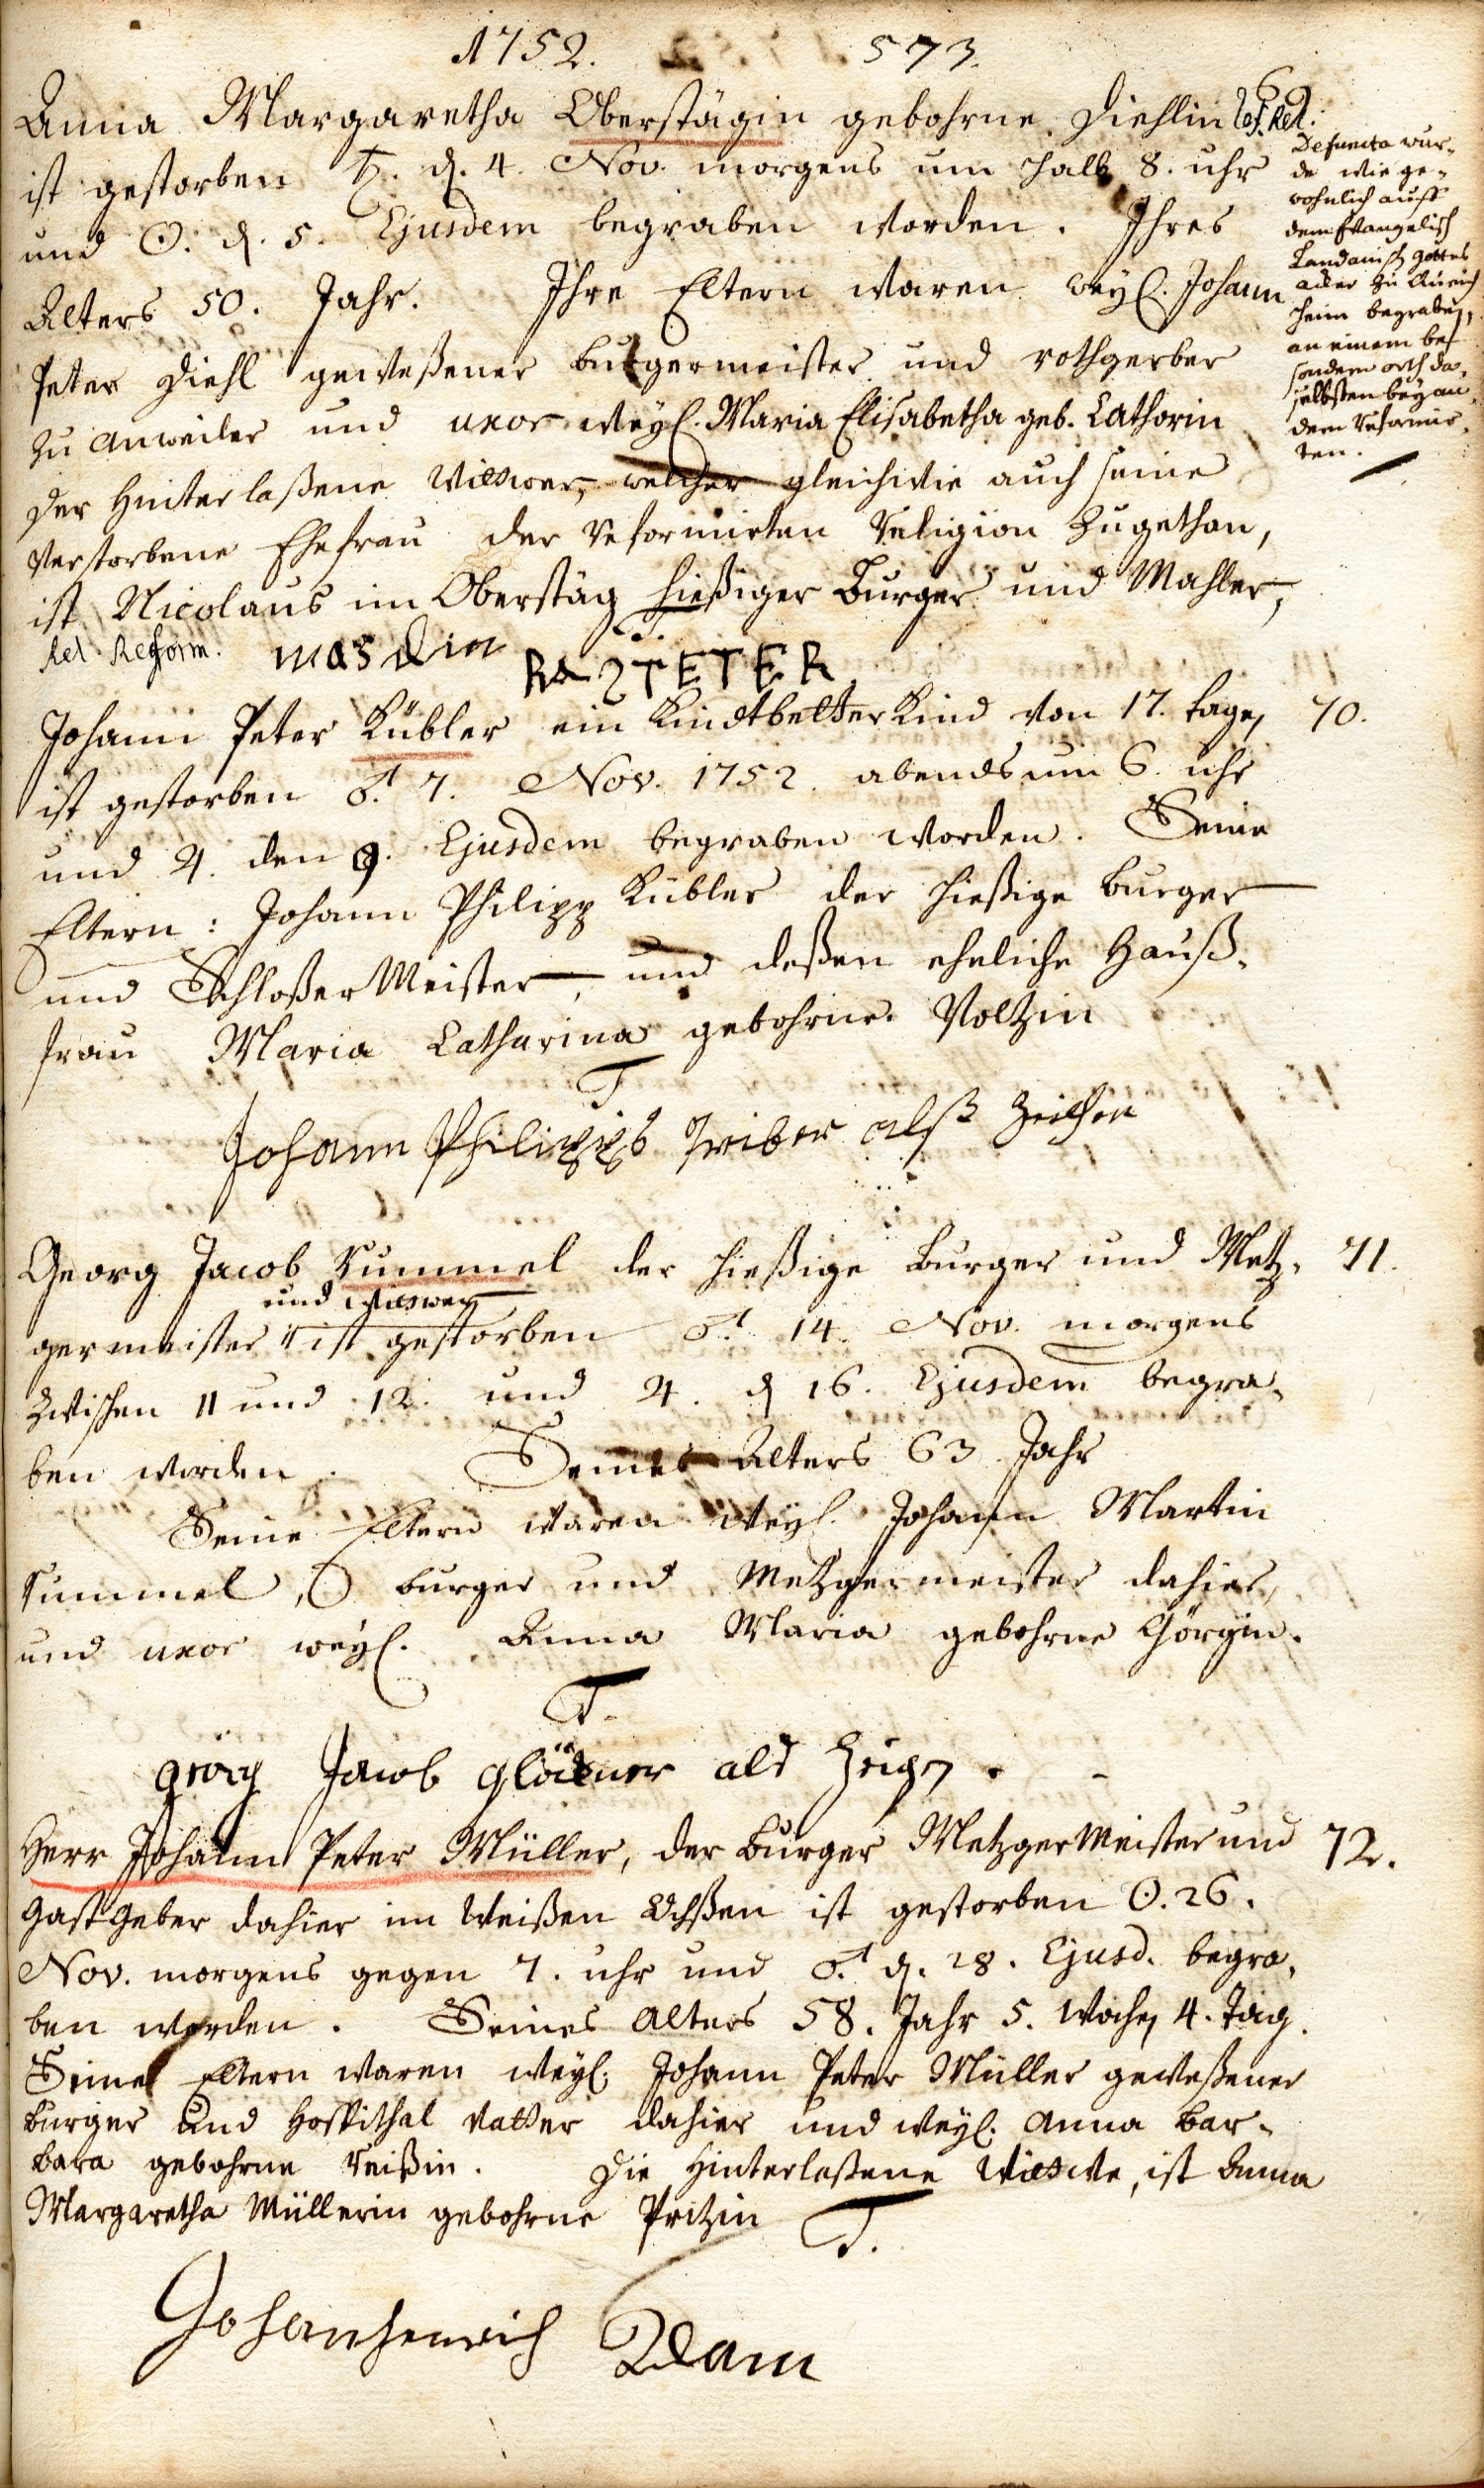 1752. 573.
Anna Margaretha Oberstägin gebohrne Diehlin Ref. Rel.
ist gestorben ♄. d. 4. Nov. morgens um halb 8. uhr
und ☉. d. 5. Ejusdem begraben worden. Ihres
Alters 50. Jahr. Ihre Eltern waren weyl. Johann
Peter Diehl geweßener burgermeister und rothgerber
zu Anweiler und uxor weyl. Maria Elisabetha geb. Cathorin
Der Hinterlaßene Wittwer, welcher gleichwie auch seine
verstorbene Ehefrau der reformirten Religion zugethan,
ist Nicolaus im Oberstäg hießiger Burger und Mahler,
Rel. Reform. T.
Defuncta wur-
de wie ge-
wohnlich auff
dem Evangelisch
Landauisch gottes
acker zu Queich
heim begraben,
an einem bes
sondern orth da-
selbsten bey an
dern Reformir-
ten.
Johann Peter Kübler ein Kindtbetter Kind von 17. tagen 70.
ist gestorben ♂. 7. Nov. 1752. abends um 6. uhr
und ♃. den 9. Ejusdem begraben worden. Seine
Eltern: Johann Philipp Kübler der hießige burger
und Schloßer Meister, und deßen eheliche Hauß-
frau Maria Catharina gebohrne Voltzin
T
Johann Philipps Treiber alß Zeithen
Georg Jacob Rummel der hießige Burger und Metz- 71.
und Wittwer
germeister ist gestorben ♂. 14. Nov. morgens
zwischen 11 und 12. und ♃. d 16. Ejusdem begra-
ben worden. Seines Alters 63 Jahr
Seine Eltern waren weyl. Johann Martin
Rummel, burger und Metzgermeister dahier,
und uxor weyl. Anna Maria gebohrne Görgin.
T.
Georg Jacob Glöckner als Zeigen.
Herr Johann Peter Müller, der Burger Metzger Meister und 72.
Gast Geber dahier im Weißen Ochßen ist gestorben ☉. 26.
Nov. morgens gegen 7. uhr und ♂. d. 28. Ejusd. begra-
ben worden. Seines Alters 58. Jahr 5. Wochen 4. Tag.
Seine Eltern waren weyl. Johann Peter Müller geweßener
burger und Hospithal Vatter dahier und weyl. Anna Bar-
bara gebohrne Reißin. Die Hinterlaßene Wittwe, ist Anna
Margaretha Müllerin gebohrne Pritzin T.
Johanhenrich Adam